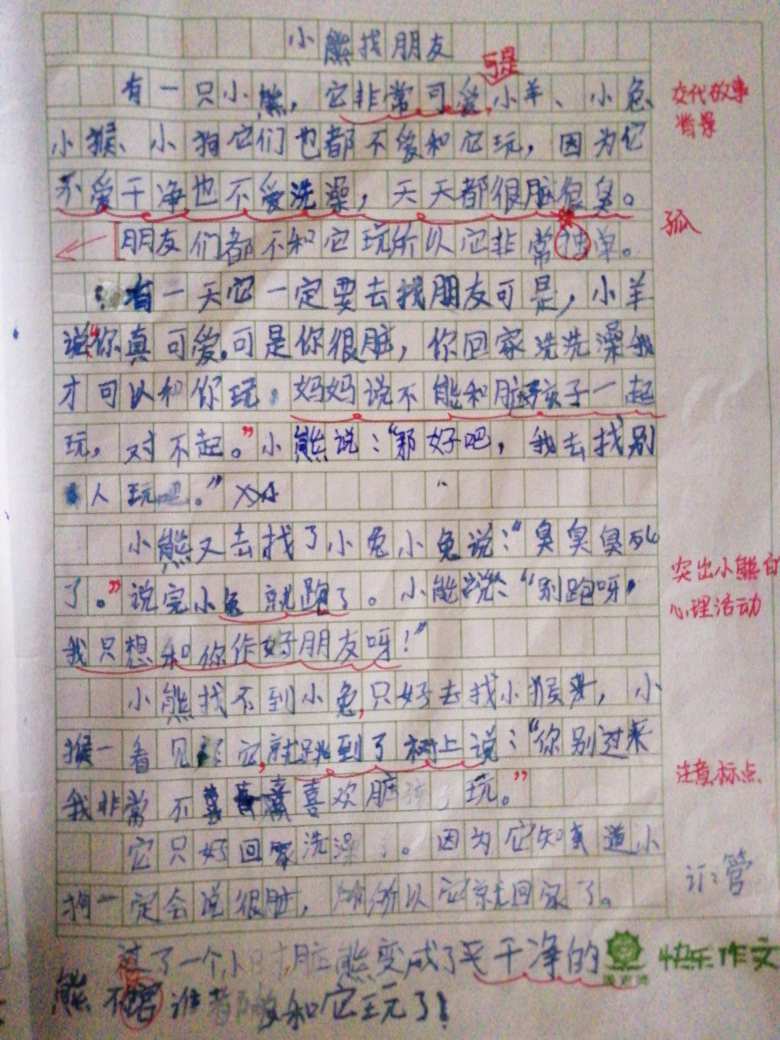 小熊找朋友
可是
有一只小熊，它非常可爱，小羊、小兔
小猴、小狗它们也都不爱和它玩，因为它
不爱干净也不爱洗澡，天天都很脏很臭。
[朋友们都不和它玩所以它非常独单。
有一天它一定要去找朋友可是，小羊
说"你真可爱，可是你很脏，你回家洗洗澡我
才可以和你玩。妈妈说不能和脏孩子一起
玩，对不起。"小熊说："那好吧，我去找别
人玩吧。"
小熊又去找了小兔小兔说："臭臭臭死
了。"说完小兔就跑了。小熊说："别跑呀，
我只想和你作好朋友呀！"
小熊找不到小兔，只好去找小猴，小
猴一看见它，就跳到了树上说："你别过来
我非常不喜欢脏孩子玩。"
它只好回家洗澡了。因为它知道小
狗一定会说很脏，所以它就回家了。
过了一个小时，脏熊变成了干净的
熊 谁都和它玩了！
交代故事
背景
孤
突出小熊的
心理活动
注意标点
快乐作文